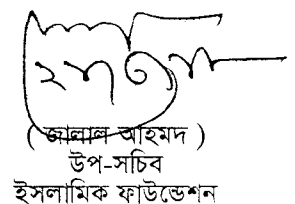 ( জালাল আহমদ )
উপ-সচিব
ইসলামিক ফাউন্ডেশন